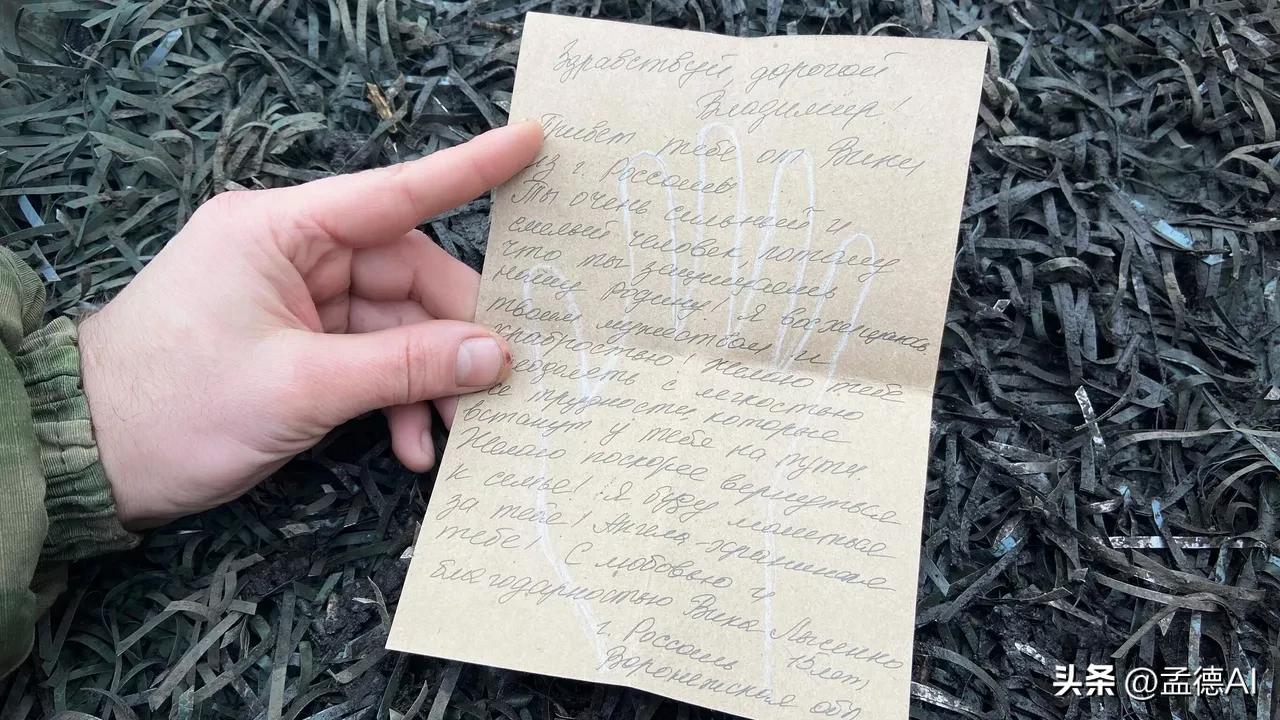 Здравствуй, дорогой
Владимир!
Привет тебе от Вики
из г. Россошь
Ты очень сильный и
смелый человек, потому
что ты защищаешь
нашу Родину! Я восхищаюсь
твоим мужеством и
храбростью! Желаю тебе
с легкостью
все трудности, которые
встанут у тебя на пути.
Желаю поскорее вернуться
к семье! Я буду молиться
за тебя! Ангела-хранителя
тебе! С любовью и
благодарностью Вика Лысенко
г. Россошь 15 лет,
Воронежская обл
头条 @孟德AI